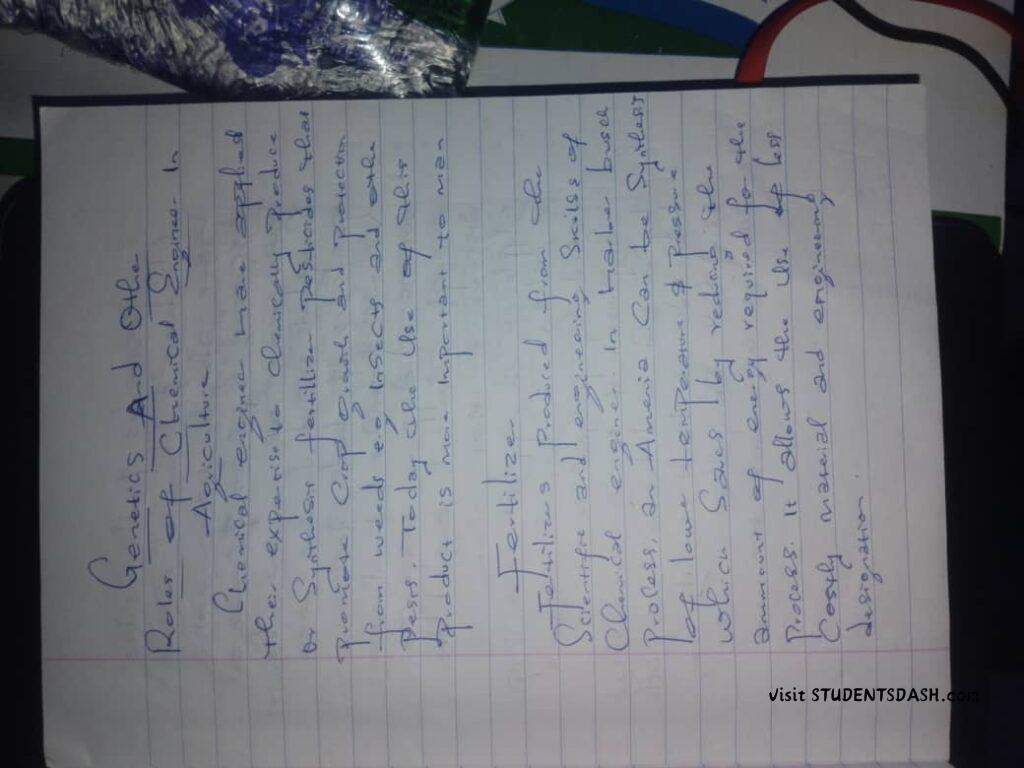 Genetics And Othe
Roles of Chemical Engineer In
Agriculture
Chemical engineer have applied
their expertise to chemically Produce
or Synthesis fertilizer Pesticides that
Promote Crop growth and Protection
from weeds eg Insects and othe
Pests. Today the Use of this
Product is more Important to man
Fertilizer
Fertilizers Produced from the
Scientific and engineering Skills of
Chemical engineer. In Harber busch
Process, an Amonia Can be Synthesis
of lower temperature & Pressure
which Saves by reducing the
ammount of energy required for the
Process. It allows the Use of less
Costly material and engineering
designation.
Visit STUDENTSDASH.com